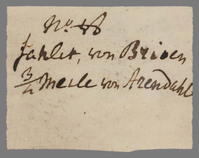 No 18
Fahlet, von Brisen
3/4 Meile von Arendahl